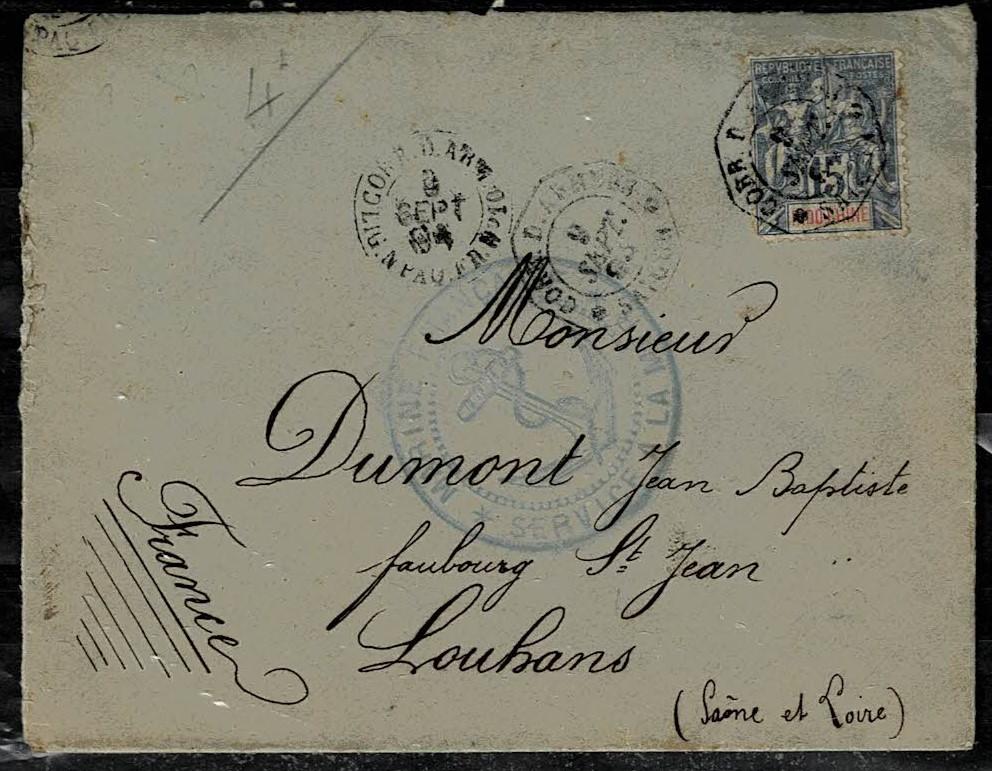 PAL
4
REPUBLIQUE FRANÇAISE
COLONIES POSTES
15
INDOCHINE
CORR. D.
CORR. D. ARM
LIG. N PAQ. FR.
9
SEPT
CORR. D. ARM
9
SEPT.
MARINE FRANÇAISE
SERVICE A LA MER
Monsieur
Dumont Jean Baptiste
faubourg St. Jean
Louhans
(Saône et Loire)
France